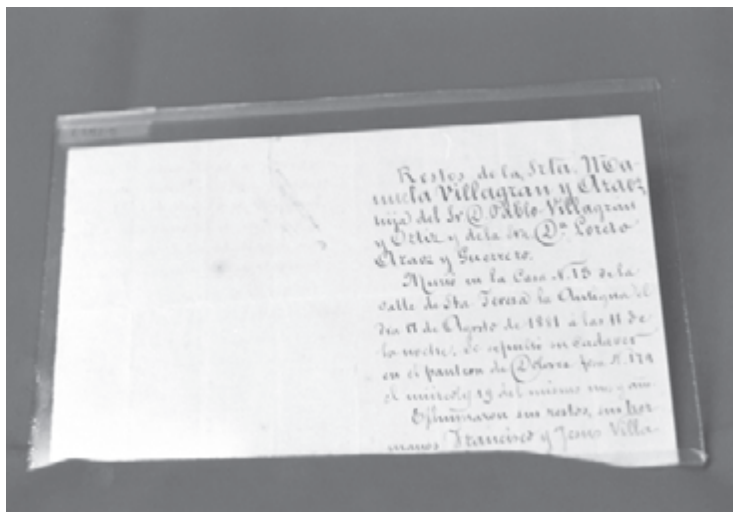 Restos de la Srta. Ma-
nuela Villagran y Araoz
hija del Sr D. Pablo Villagran
y Ortiz y de la Sra. Da. Loreto
Araoz y Guerrero.
Murió en la Casa N. 13 de la
calle de Sta. Teresa la Antigua el
dia 17 de Agosto de 1881 á las 11 de
la noche. Se sepultó su cadaver
en el panteon de Dolores fosa N. 174
el miércoles 19 del mismo mes y año
Exhumaron sus restos, sus her-
manos Francisco y Jesus Villa-